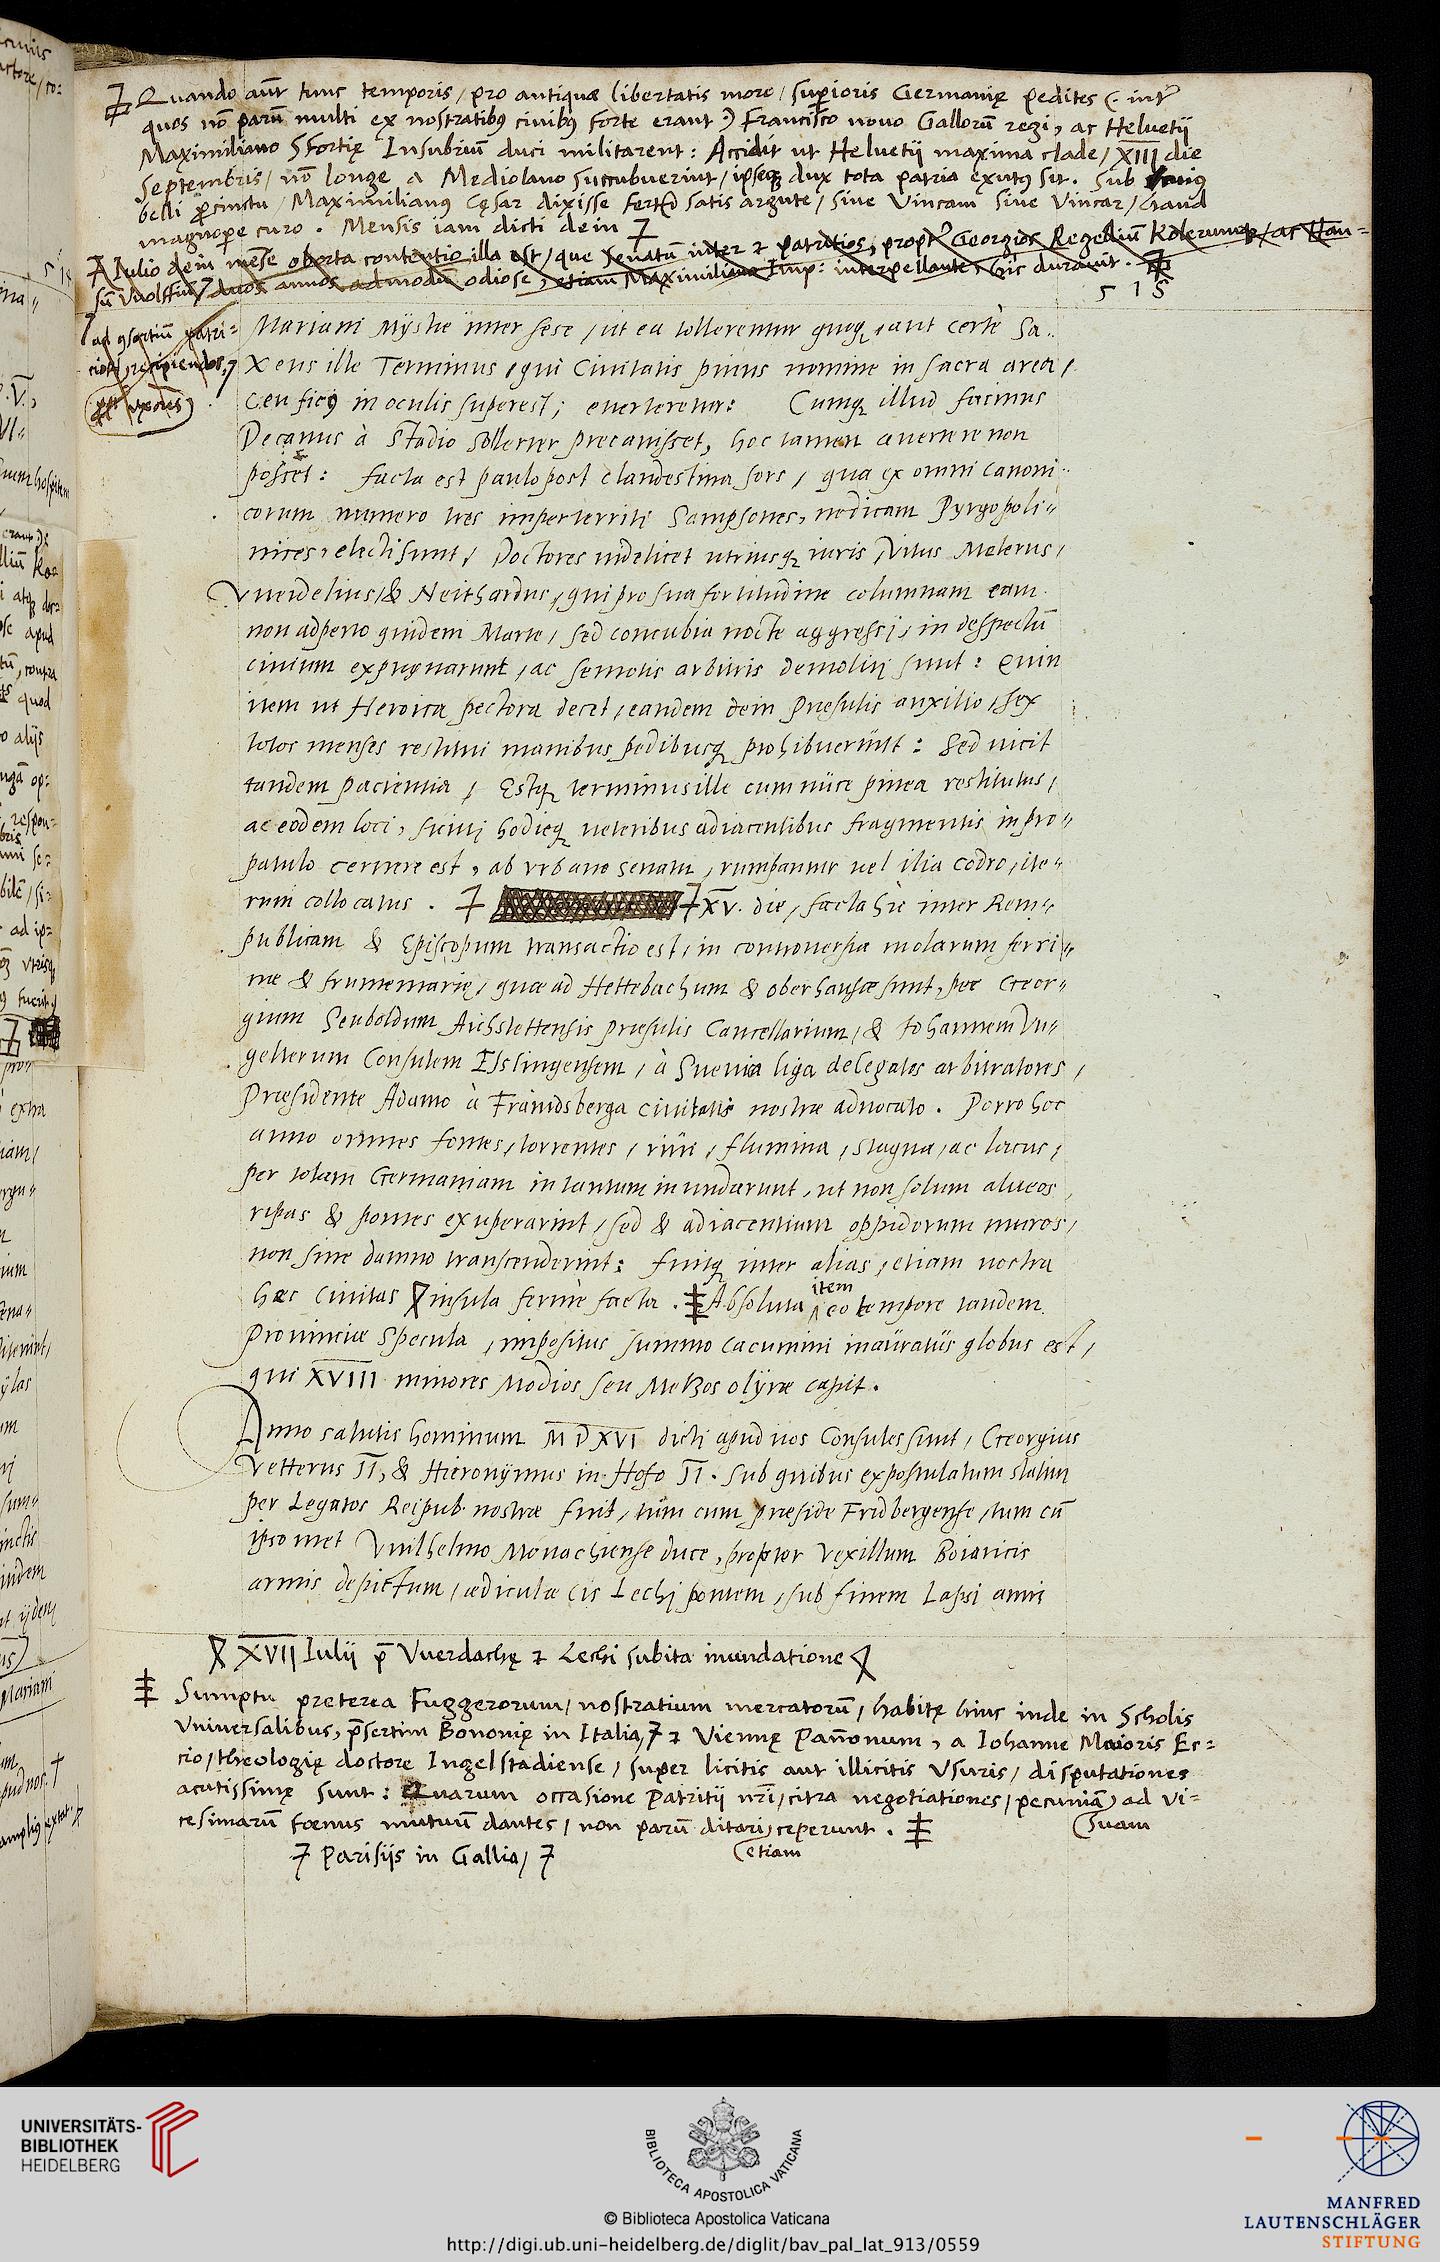 Quando aūt tunc temporis, pro antiquæ libertatis more, superioris Germanię pedites (. intr̃
quos nō parū multi ex nostratibq civibq forte erant .) Francisco novo Gallorū regi, ac Helvetij
Maximiliano Sfortię Insubriū duci militarent: Accidit ut Helvetij maxima clade, XIII die
Septembris, nō longe a Mediolano succubuerint, ipseq dux tota patria exutq sit. Sub
belli ꝓcinctu, Maximilianq Cęsar dixisse fertr̃ satis argute, sive Vincam sive Vincar, haud
magnopere curo . Mensis iam dicti dein
Iulio dein mēse oborta contentio illa est, que Senatū inter & patritios, propt̃ Georgios Regeliū Kolerumq, ac Han-
sū Vuolffiū duos annos admodū odiose, etiam Maximiliano Imp: interpellante, hic duravit .
5 1 5
ad ꝯsortiū patri-
ciorū recipiendos,
ꝓpt̃ uxores
Mariani Mystæ inter sese, ut ea tollerentur quoq, aut certè Sa-
xeus ille Terminus, qui Civitatis pinus nomine in sacra area,
Ceu ficq in oculis superest; everteretur: Cumq illud facinus
Decanus à Stadio sollerter precavisset, hoc tamen avertere non
posset: facta est paulo post clandestina sors, qua ex omni canoni-
corum numero tres imperterriti Sampsones, ne dicam Pyrgopoli-
nices, electi sunt, Doctores videlicet utriusq iuris, Vitus Melerus,
Vueidelius, & Neithardus, qui pro sua fortitudine columnam eam
non adperto quidem Marte, sed concubia nocte aggressi, in despectū
civium expugnarunt, ac semotis arbitris demoliti sunt: Quin
item ut Heroica pectora decet, eandem dein Præsulis auxilio, sex
totos menses restitui manibus pedibusq prohibuerunt: Sed vicit
tandem pacientia, Estq terminus ille cum nuce pinea restitutus,
ac eodem loci, sicuti hodieq veteribus adiacentibus fragmentis in pro-
patulo cernere est, ab urbano senatu, rumpantur vel ilia Codro, ite-
rum collocatus . XV. die, facta hic inter Rem-
publicam & Episcopum transactio est, in controversia molarum ferri-
næ & frumentarię, quæ ad Hettebachum & oberhausæ sunt, per Geor-
gium Seuboldum Aichstettensis præsulis Cancellarium, & Iohannem Vn-
gelterum Consulem Esslingensem, à Suevia liga delegatos arbitratores,
Præsidente Adamo à Frundsberga civitatis nostræ advocato . Porro hoc
anno omnes fontes, torrentes, rivi, flumina, stagna, ac lacus,
per totam Germaniam in tantum inundarunt, ut non solum alveos,
ripas & pontes exuperarint, sed & adiacentium oppidorum muros,
non sine damno transcenderint: fuitq inter alias, etiam nostra
hæc Civitas insula fermè facta . Absoluta item eo tempore tandem
Provinciæ Specula, impositus summo cacumini inauratus globus est,
qui XVIII minores Modios seu Metzos olyræ capit .
Anno salutis hominum MDXVI dicti apud nos Consules sunt, Georgius
Vetterus II, & Hieronymus in Hofo II. Sub quibus expostulatum statim
per Legatos Reipub. nostræ fuit, tum cum præside Fridbergense, tum cū
ipsomet Vuilhelmo Monachiense duce, propter vexillum Boiaricis
armis depictum, ædiculæ cis Lechi pontem, sub finem Lapsi anni
XVII Iulij p̄ Vuerdachę & Lechi subita inundatione
Sumptu preterea Fuggerorum, nostratium mercatorū, habitę hinc inde in Scholis
Universalibus, p̄sertim Bononię in Italia, & Viennę Pañonum, a Iohanne Maioris Ec-
cio, theologię doctore Ingelstadiense, super licitis aut illicitis Usuris, disputationes
acutissimę sunt: Quarum occasione Patritij nr̄i, citra negotiationes, pecuniā, ad vi-
cesimarū foenus mutuū dantes, non parū ditari, ceperunt .
suam
etiam
Parisijs in Gallia,
UNIVERSITÄTS-
BIBLIOTHEK
HEIDELBERG
BIBLIOTECA APOSTOLICA VATICANA
© Biblioteca Apostolica Vaticana
http://digi.ub.uni-heidelberg.de/diglit/bav_pal_lat_913/0559
MANFRED
LAUTENSCHLÄGER
STIFTUNG